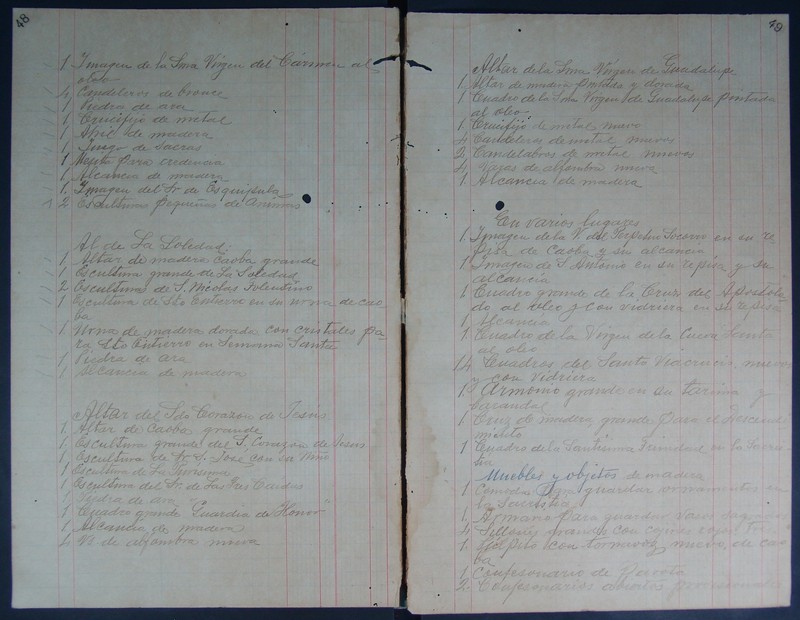 48
1 Imagen de la Sma Virgen del Cármen al
oleo
4 Candeleros de bronce
1 Piedra de ara
1 Crucifijo de metal
1 Atril de madera
1 Juego de Sacras
1 Mesita para credencia
1 Alcancia de madera
1. Imagen del Sr de Esquipula
2 Esculturas pequeñas de Animas
Al de La Soledad.
1 Altar de madera caoba grande
1 Escultura grande de La Soledad
2 Esculturas de S. Nicolas Tolentino
1 Escultura de Sto Entierro en su urna de cao-
ba
1 Urna de madera dorada con cristales pa-
ra Sto Entierro en Semana Santa
1 Piedra de ara
1 Alcancia de madera
Altar del Sdo Corazon de Jesus
1 Altar de Caoba grande
1 Escultura grande del S. Corazon de Jesus
1 Escultura de Sr S. José con su Niño
1 Escultura de La Purisima
1 Escultura del Sr de Las Tres Caidas
1 Piedra de ara
1 Cuadro grande "Guardia de Honor"
1 Alcancia de madera
4 Vs de alfombra nueva
49
Altar de la Sma. Virgen de Guadalupe
1 Altar de madera pintada y dorada
1 Cuadro de la Sma Virgen de Guadalupe pintada
al oleo
1 Crucifijo de metal nuevo
4 Candeleros de metal nuevos
2 Candelabros de metal nuevos
4 Varas de alfombra nueva
1 Alcancia de madera
En varios lugares
1 Imagen de la V. del Perpetuo Socorro en su re-
pisa de Caoba y su alcancia
1 Imagen de S. Antonio en su repisa y su
alcancia
1 Cuadro grande de la Cruz del Apostola-
do al oleo y con vidriera en su repisa
1 Alcancia
1 Cuadro de la Virgen de la Cueva Santa
al oleo
14 Cuadros del Santo Viacrucis nuevos
y con vidriera
1 Armonio grande en su tarima y
barandal
1 Cruz de madera grande para el Descendi-
miento
1 Cuadro de la Santisima Trinidad en la Sacris-
tia
Muebles y objetos de madera
1 Comoda para guardar ornamentos en
la Sacristia
1 Armario para guardar vasos sagrados
4 Sillones grandes con
1 Pulpito con tornavoz nuevo, de cao-
ba
1 Confesonario de
2 Confesonarios abiertos